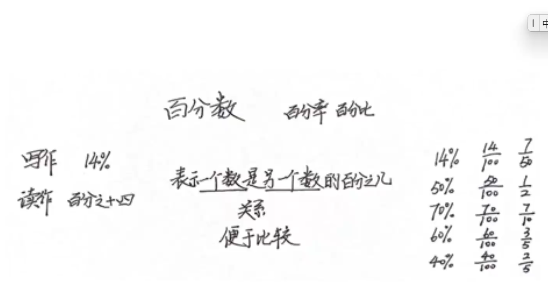 百分数 百分率 百分比
写作 14%
读作 百分之十四
表示一个数是另一个数的百分之几
关系
便于比较
14% 14/100 7/50
50% 50/100 1/2
70% 70/100 7/10
60% 60/100 3/5
40% 40/100 2/5
中